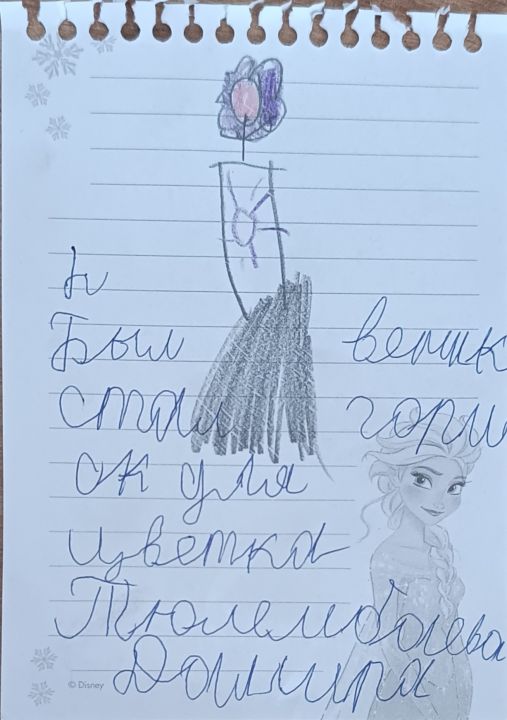 Был веник
стал горш
ок для
цветка
Тюлембаева
© Disney